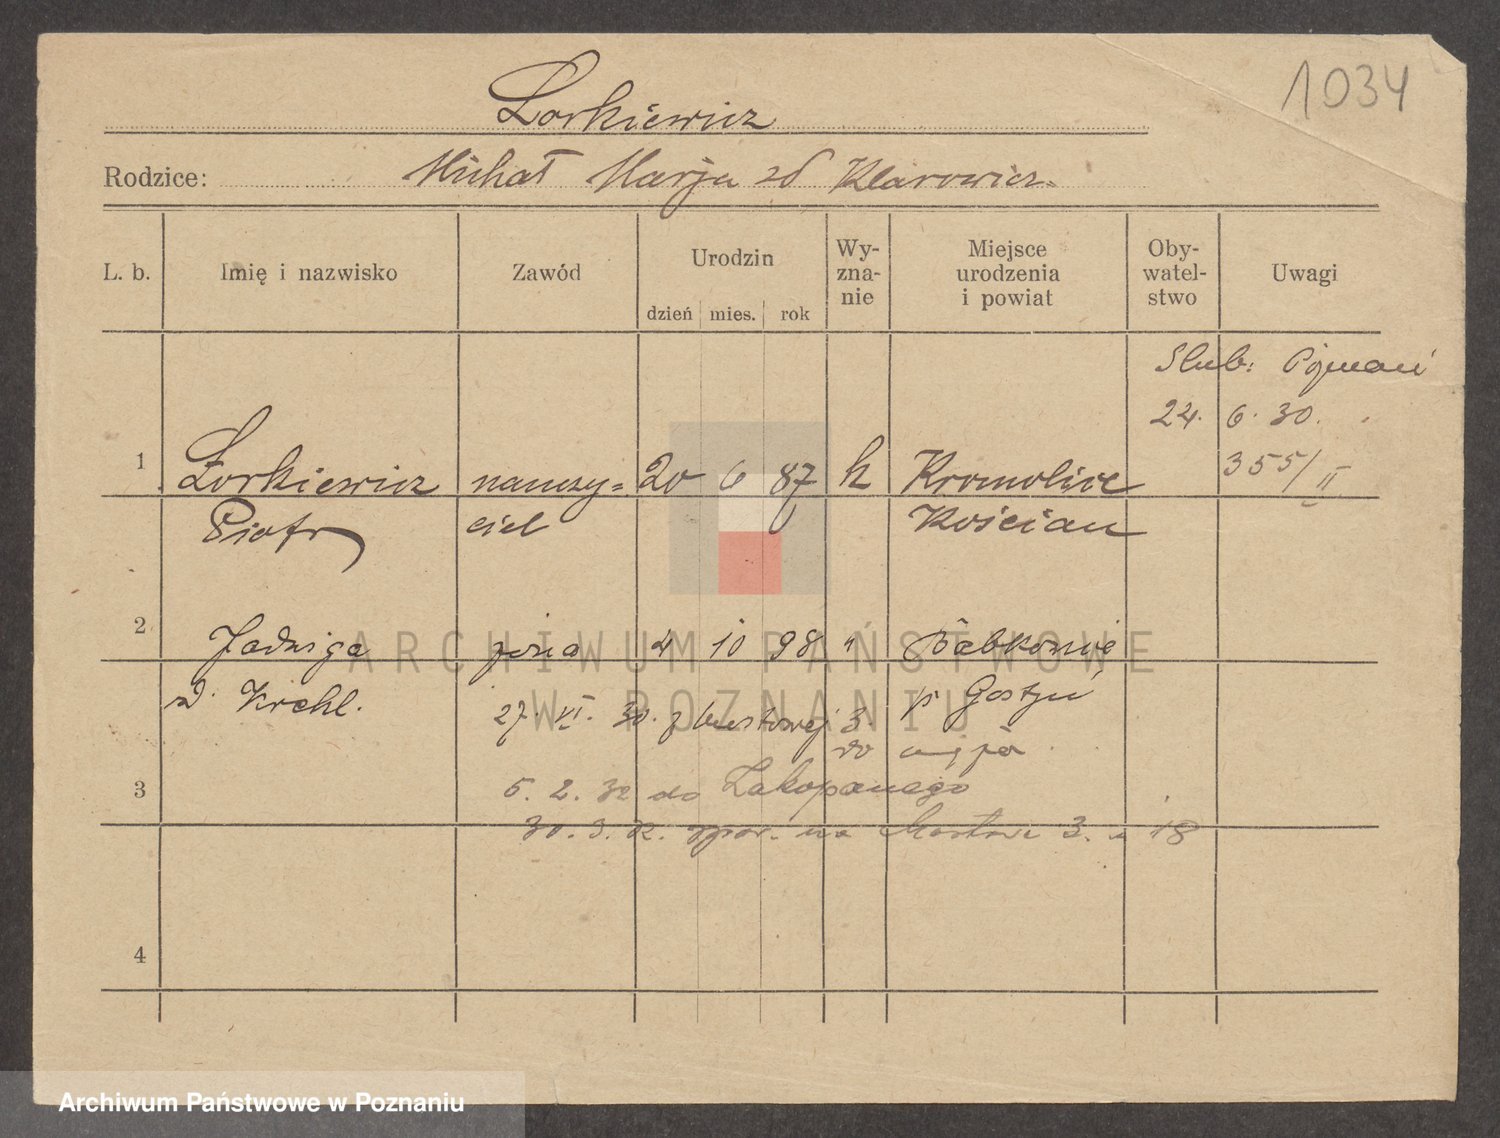 1034
Lorkiewicz
Rodzice: Michał Marja zd Klarowicz
L. b. Imię i nazwisko Zawód Urodzin Wy-zna-nie Miejsce urodzenia i powiat Oby-watel-stwo Uwagi
dzień mies. rok
Slub: Poznań
24. 6. 30.
355/II
1 Lorkiewicz nauczy= 20 6 87 k Kromolice
Piotr ciel Kościan
2 Jadwiga żona 4 10 98 " Bąbkowie
zd. Krehl. p. Gostyń
27. VI. 30. z Mostowej 3.
do męża
3 5. 2. 32 do Zakopanego
30. 3. 32. spow. na Mostowa 3. 18
4
ARCHIWUM PAŃSTWOWE
W POZNANIU
Archiwum Państwowe w Poznaniu